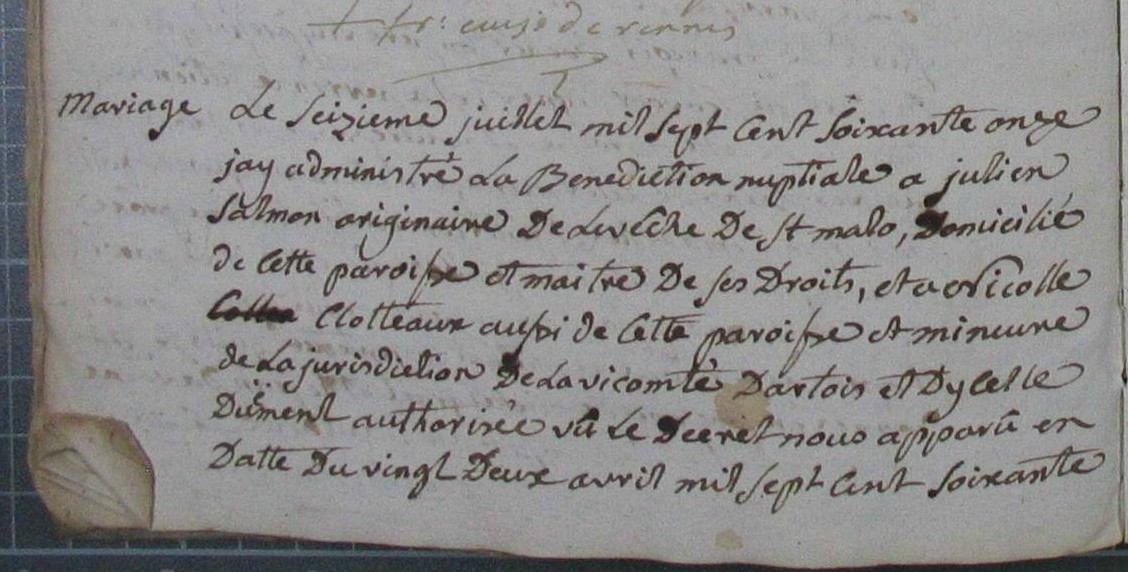 de rennes
Mariage Le seizieme juillet mil sept cent soixante onze
jay administré La Benediction nuptiale a julien
salmon originaire De Levéche De St malo, Domicilié
de cette paroisse et maitre De ses Droits, et a Nicolle
Clotteaux aussi de cette paroisse et mineure
de La jurisdiction De La vicomté Dartois et Dycelle
Düement authorisée vû Le Decret nous apparû en
Datte Du vingt Deux avril mil sept cent soixante